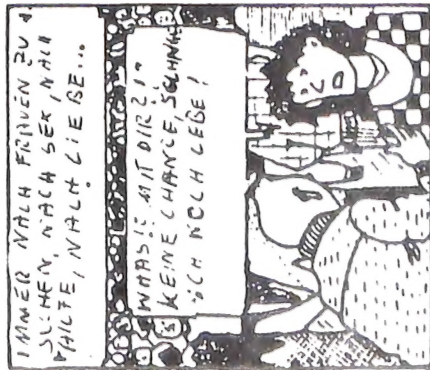 IMMER NACH FRAUEN ZU
SUCHEN, NACH SEX, NACH
HILFE, NACH LIEBE...
WHAS!! MIT DIR?!
KEINE CHANCE, SOLANGE
ICH NOCH LEBE!